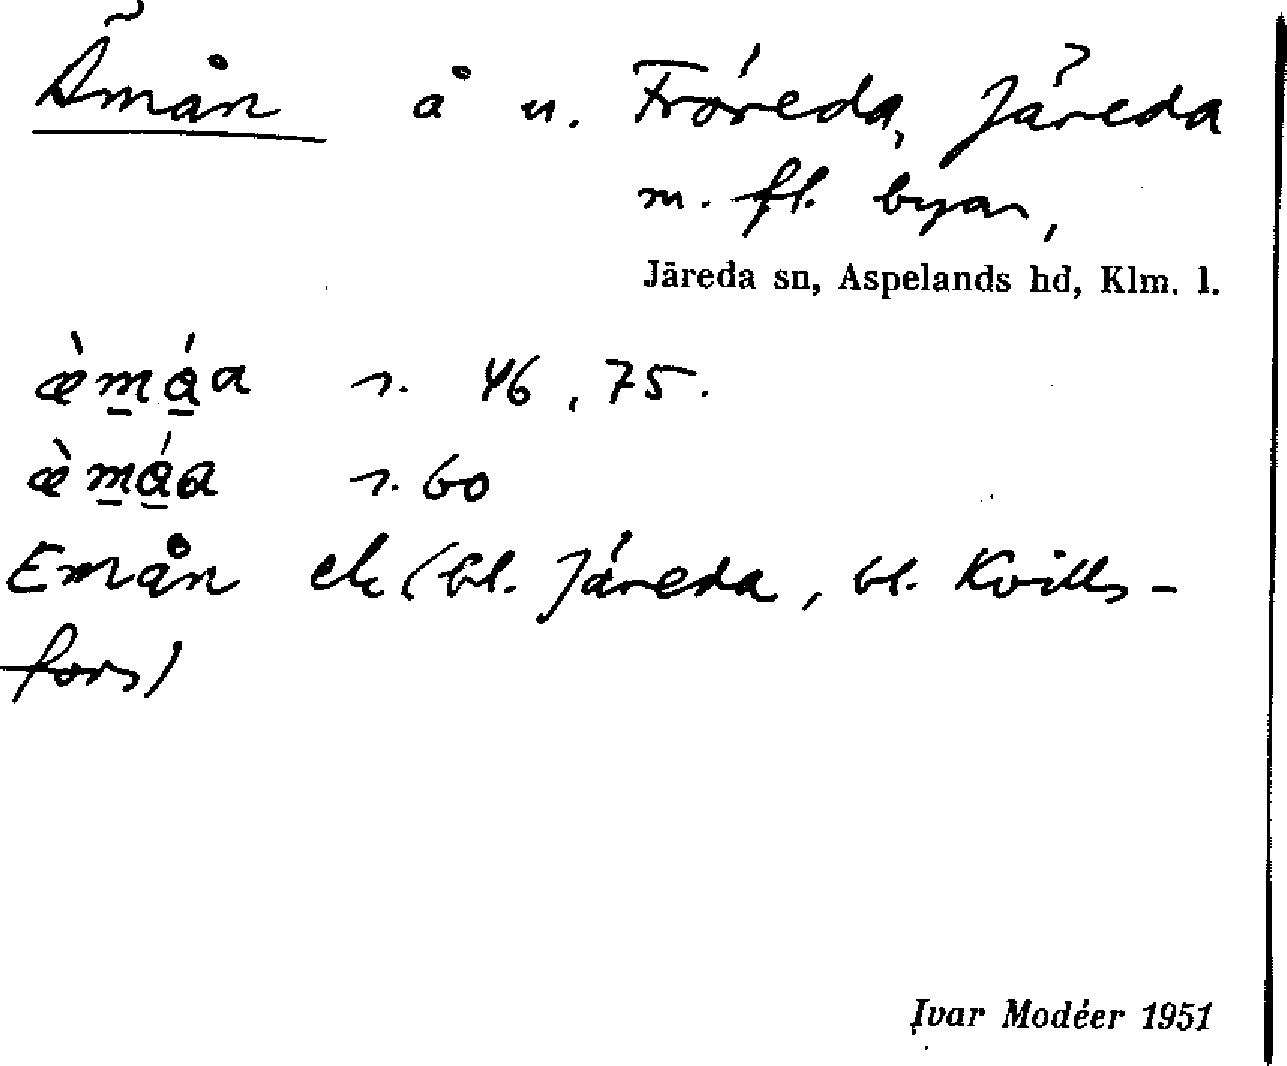 Ämån å u. Fröreda, Järeda
m. fl. byar,
Järeda sn, Aspelands hd, Klm. l.
æ̀m̲á̲a s. 46, 75.
æ̀m̲á̲a s. 60
Emån ek (bl. Järeda, bl. Kvills-
fors)
Ivar Modéer 1951